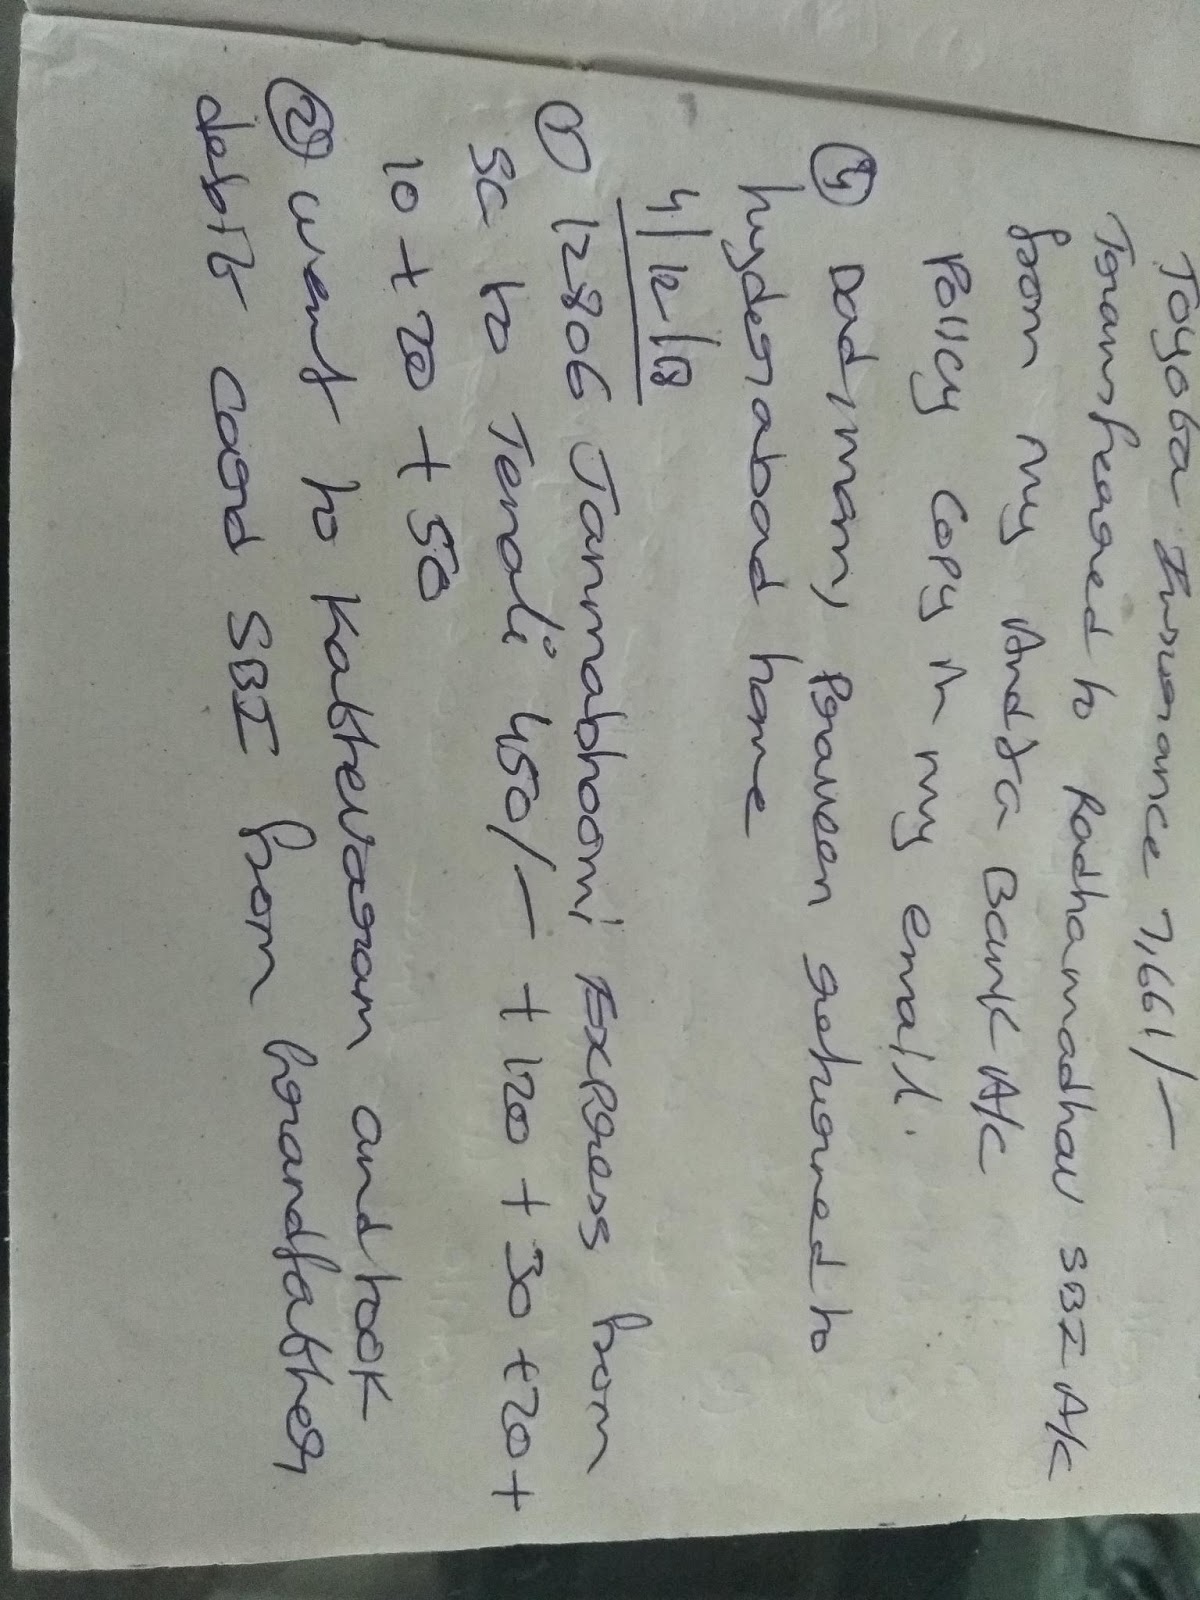 Toyota Insurance 7,661/-
Transferred to Radhamadhav SBI A/c
from my Andhra Bank A/c
Policy copy in my email.
④ Dad, mam, Praveen returned to
hyderabad home
4/12/18
① 12806 Janmabhoomi Express from
SC to Tenali 450/- + 120 + 30 + 20 +
10 + 20 + 50
② went to Kattevaram and took
debit card SBI from grandfather